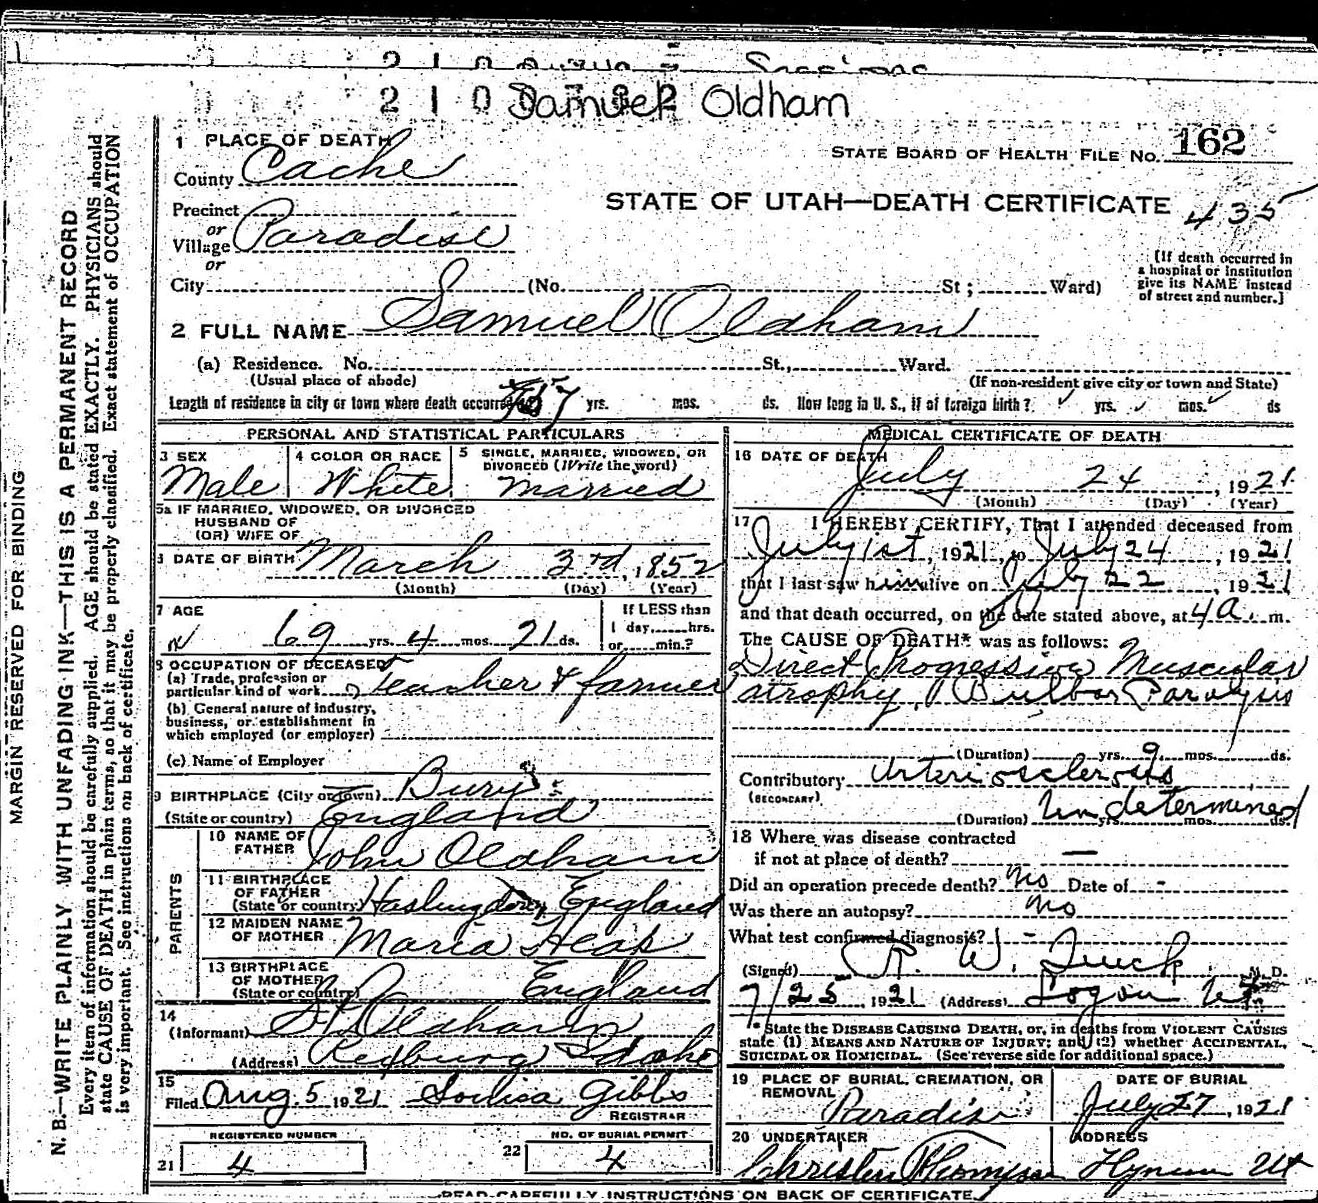 Samuel Oldham
1 PLACE OF DEATH
STATE BOARD OF HEALTH FILE NO. 162
County Cache
STATE OF UTAH—DEATH CERTIFICATE 435
Precinct
or
Village Paradise
or
City (No. St; Ward)
[If death occurred in
a hospital or institution
give its NAME instead
of street and number.]
2 FULL NAME Samuel Oldham
(a) Residence. No. St., Ward.
(Usual place of abode) (If non-resident give city or town and State)
Length of residence in city or town where death occurred yrs. mos. ds. How long in U. S., if of foreign birth? yrs. mos. ds
MARGIN RESERVED FOR BINDING
N. B.—WRITE PLAINLY WITH UNFADING INK—THIS IS A PERMANENT RECORD
Every item of information should be carefully supplied. AGE should be stated EXACTLY. PHYSICIANS should
state CAUSE OF DEATH in plain terms, so that it may be properly classified. Exact statement of OCCUPATION
is very important. See instructions on back of certificate.
PERSONAL AND STATISTICAL PARTICULARS
3 SEX
Male
4 COLOR OR RACE
White
5 SINGLE, MARRIED, WIDOWED, OR
DIVORCED (Write the word)
Married
5a IF MARRIED, WIDOWED, OR DIVORCED
HUSBAND OF
(OR) WIFE OF
6 DATE OF BIRTH March 3rd, 1852
(Month) (Day) (Year)
7 AGE
69 yrs. 4 mos. 21 ds.
If LESS than
1 day, hrs.
or min.?
8 OCCUPATION OF DECEASED
(a) Trade, profession or
particular kind of work Teacher & farmer
(b) General nature of industry,
business, or establishment in
which employed (or employer)
(c) Name of Employer
9 BIRTHPLACE (City or town) Bury
(State or country) England
PARENTS
10 NAME OF
FATHER John Oldham
11 BIRTHPLACE
OF FATHER
(State or country) Haslingden, England
12 MAIDEN NAME
OF MOTHER Maria Heap
13 BIRTHPLACE
OF MOTHER
(State or country) England
14
(Informant) Oldham
(Address) Rexburg Idaho
15
Filed Aug. 5 1921 Gibbs
REGISTRAR
REGISTERED NUMBER
21 4
NO. OF BURIAL PERMIT
22 4
MEDICAL CERTIFICATE OF DEATH
16 DATE OF DEATH July 24, 1921
(Month) (Day) (Year)
17 I HEREBY CERTIFY, That I attended deceased from
July 1st, 1921, to July 24, 1921
that I last saw him alive on July 22, 1921
and that death occurred, on the date stated above, at 4 a. m.
The CAUSE OF DEATH* was as follows:
Direct Progressive Muscular
atrophy, Bulbar Paralysis
(Duration) yrs. 9 mos. ds.
Contributory Arteriosclerosis
(SECONDARY)
(Duration) Undetermined yrs. mos. ds.
18 Where was disease contracted
if not at place of death? —
Did an operation precede death? No Date of -
Was there an autopsy? No
What test confirmed diagnosis? -
(Signed) R. W. M. D.
7/25 1921 (Address) Logan Ut.
*State the DISEASE CAUSING DEATH, or, in deaths from VIOLENT CAUSES
state (1) MEANS AND NATURE OF INJURY; and (2) whether ACCIDENTAL,
SUICIDAL OR HOMICIDAL. (See reverse side for additional space.)
19 PLACE OF BURIAL, CREMATION, OR
REMOVAL
Paradise
DATE OF BURIAL
July 27, 1921
20 UNDERTAKER
ADDRESS
Hyrum Ut
READ CAREFULLY INSTRUCTIONS ON BACK OF CERTIFICATE.